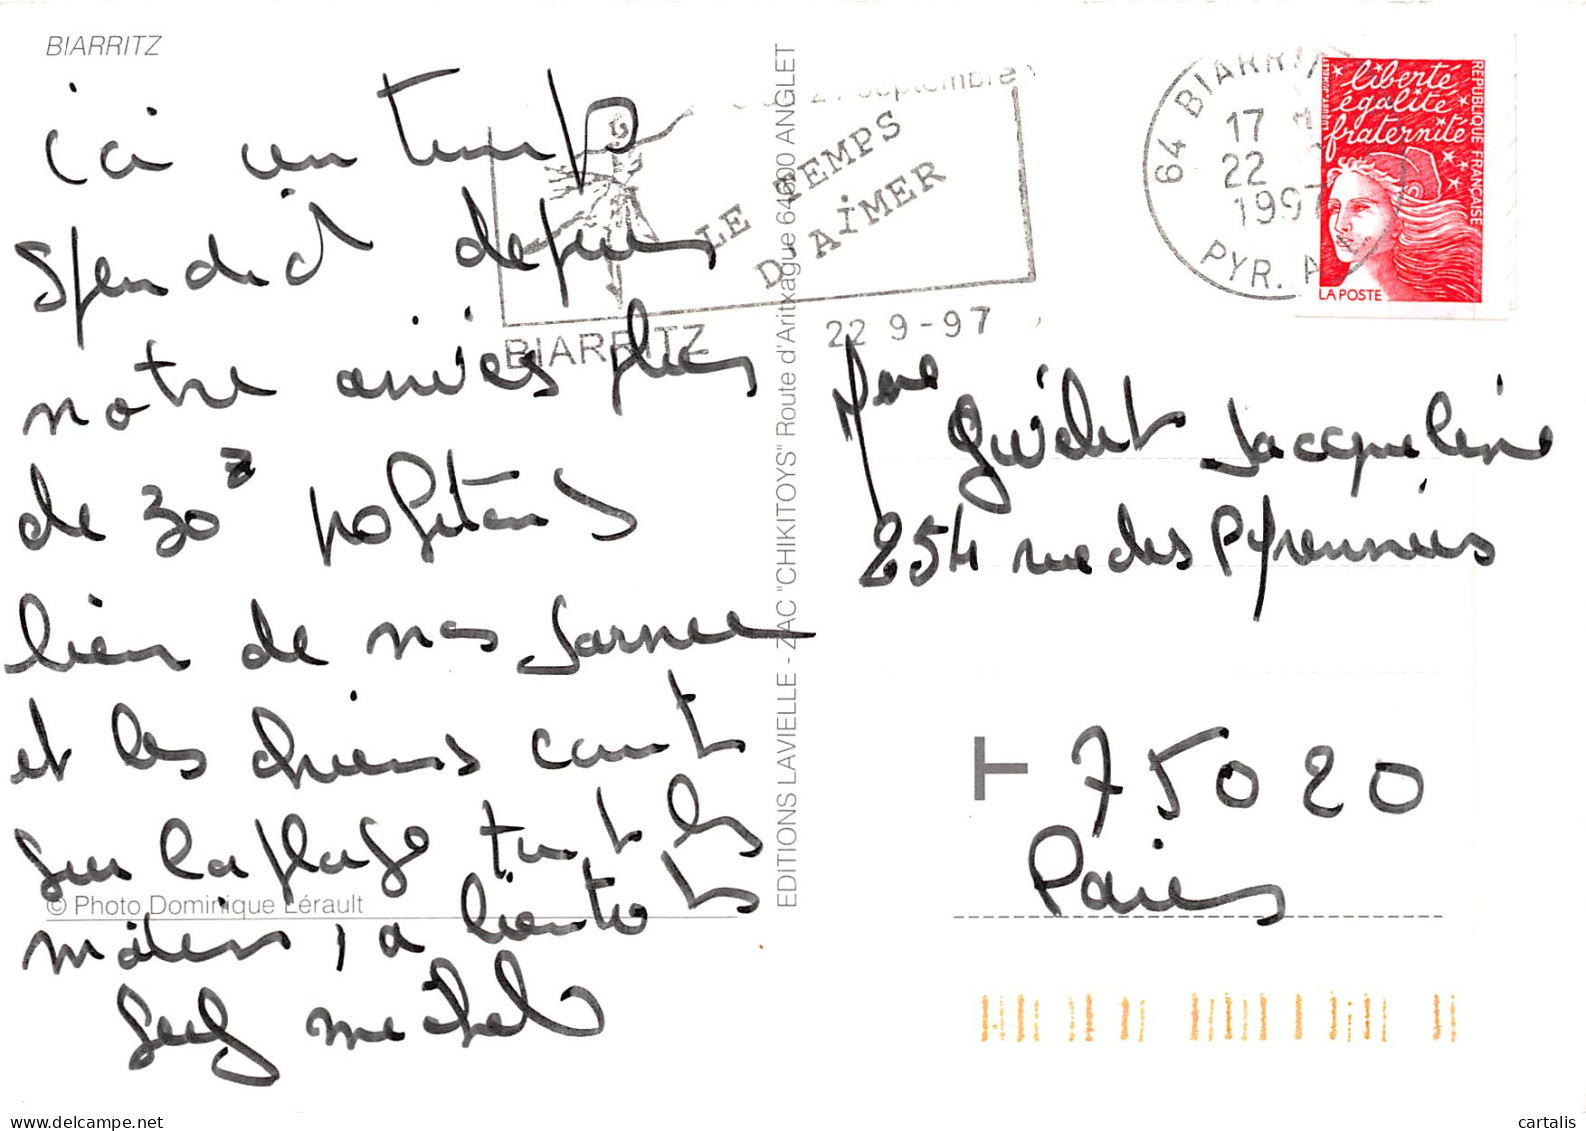 BIARRITZ
ici un temps
splendid depuis
notre arrivés plus
de 30° profitons
bien de nos
et les chiens court
sur la plage tout les
matin, a bientôt
michel
© Photo Dominique Lérault
EDITIONS LAVIELLE - ZAC "CHIKITOYS" Route d'Aritxague 64600 ANGLET
septembre
LE TEMPS
D'AIMER
BIARRITZ
22 9-97
64 BIARRIT
17
22
1997
PYR. A
liberté
égalité
fraternité
REPUBLIQUE FRANÇAISE
LA POSTE
Mme Guidet Jacqueline
254 rue des Pyrennées
T 75020
Paris
cartalis